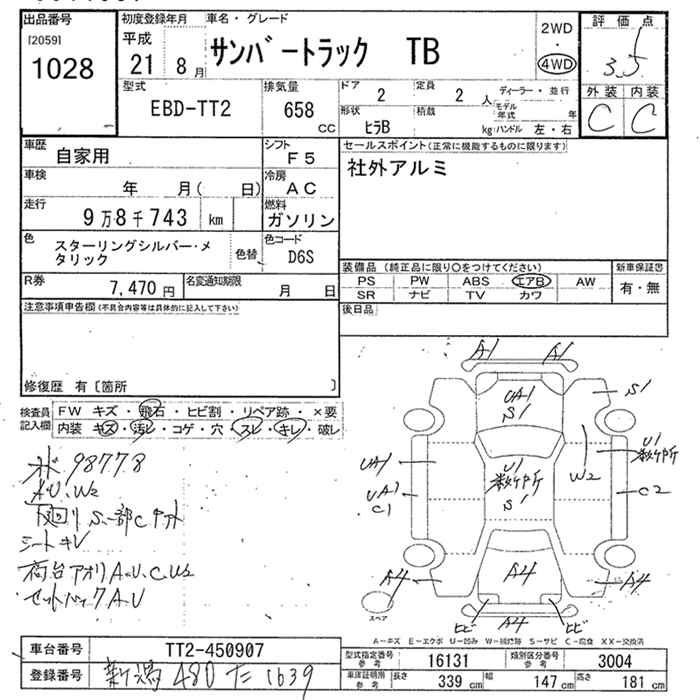 出品番号
[2059]
1028
初度登録年月
平成
21 8月
車名・グレード
サンバートラック TB
2WD
4WD
評価点
3.5
型式
EBD-TT2
排気量
658 CC
ドア
2
定員
2 人
ディーラー・並行
モデル年式 年
形状
ヒラB
積載
kg
ハンドル 左・右
外装 内装
C C
車歴
自家用
シフト
F5
セールスポイント(正常に機能するものに限ります)
社外アルミ
車検
年 月( 日)
冷房
AC
走行
9万8千743 km
燃料
ガソリン
色
スターリングシルバー・メタリック
色替
色コード
D6S
装備品(純正品に限り〇をつけてください)
PS PW ABS エアB AW
SR ナビ TV カワ
新車保証書
有・無
R券
7,470 円
名変通知期限
月 日
後日品
注意事項申告欄(不具合内容等は具体的に記入して下さい)
修復歴 有[箇所 ]
検査員記入欄
FW キズ・飛石・ヒビ割・リペア跡・×要
内装 キズ・汚レ・コゲ・穴・スレ・キレ・破レ
98778
A.U.W2
下回り S.一部C
シートキレ
荷台アオリ A.U.C.U2
A.U
A1 A1
UA1
S1
S1
U1
数ヶ所
W2
UA1
U1
数ヶ所
S1
UA1
C1
C2
A4
A4
A4
ヒビ
A4
ヒビ
スペア
A-キズ E-エクボ U-凹み W-補修跡 S-サビ C-腐食 XX-交換済
車台番号
TT2-450907
登録番号
新潟 480 た 1639
型式指定番号
参考
16131
類別区分番号
参考
3004
車庫証明用
参考
長さ
339 cm
幅
147 cm
高さ
181 cm